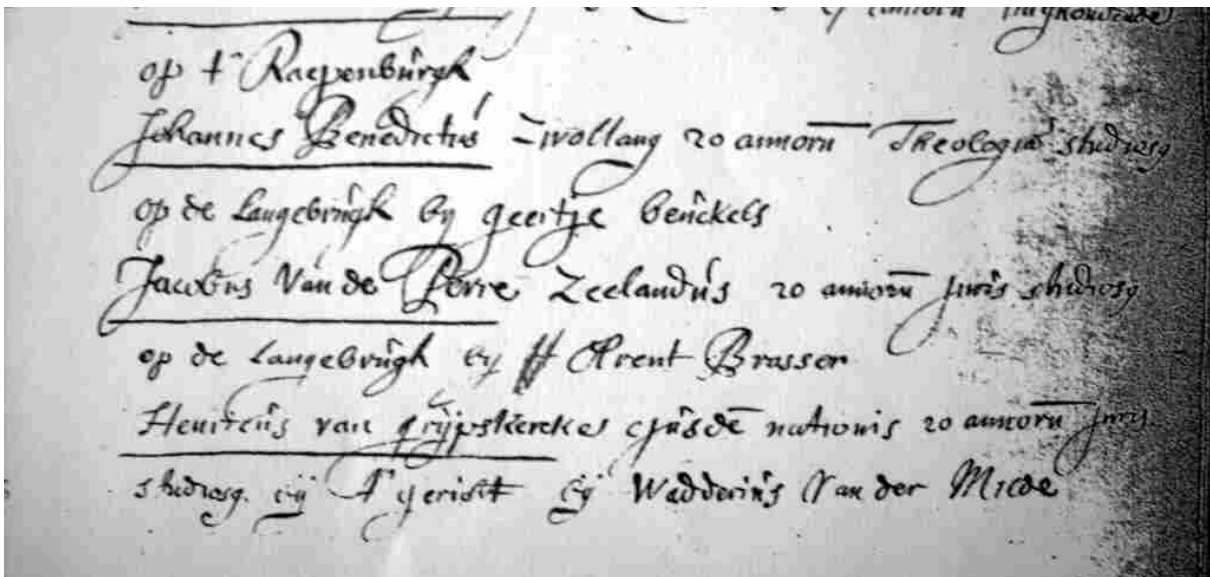 annorū
op t' Raepenburgh
Johannes Benedictus Zwollanq 20 annorū Theologiæ studiosq
op de Langebrugh by geertje Benckels
Jacobus Van de Perre Zeelandus 20 annorū Juris studiosq
op de Langebrugh by Arent Brasser
Henricus van grijpskercke ejusdē nationis 20 annorū Juris
studiosq. bij t' gericht bij Wedderius Van der Miede